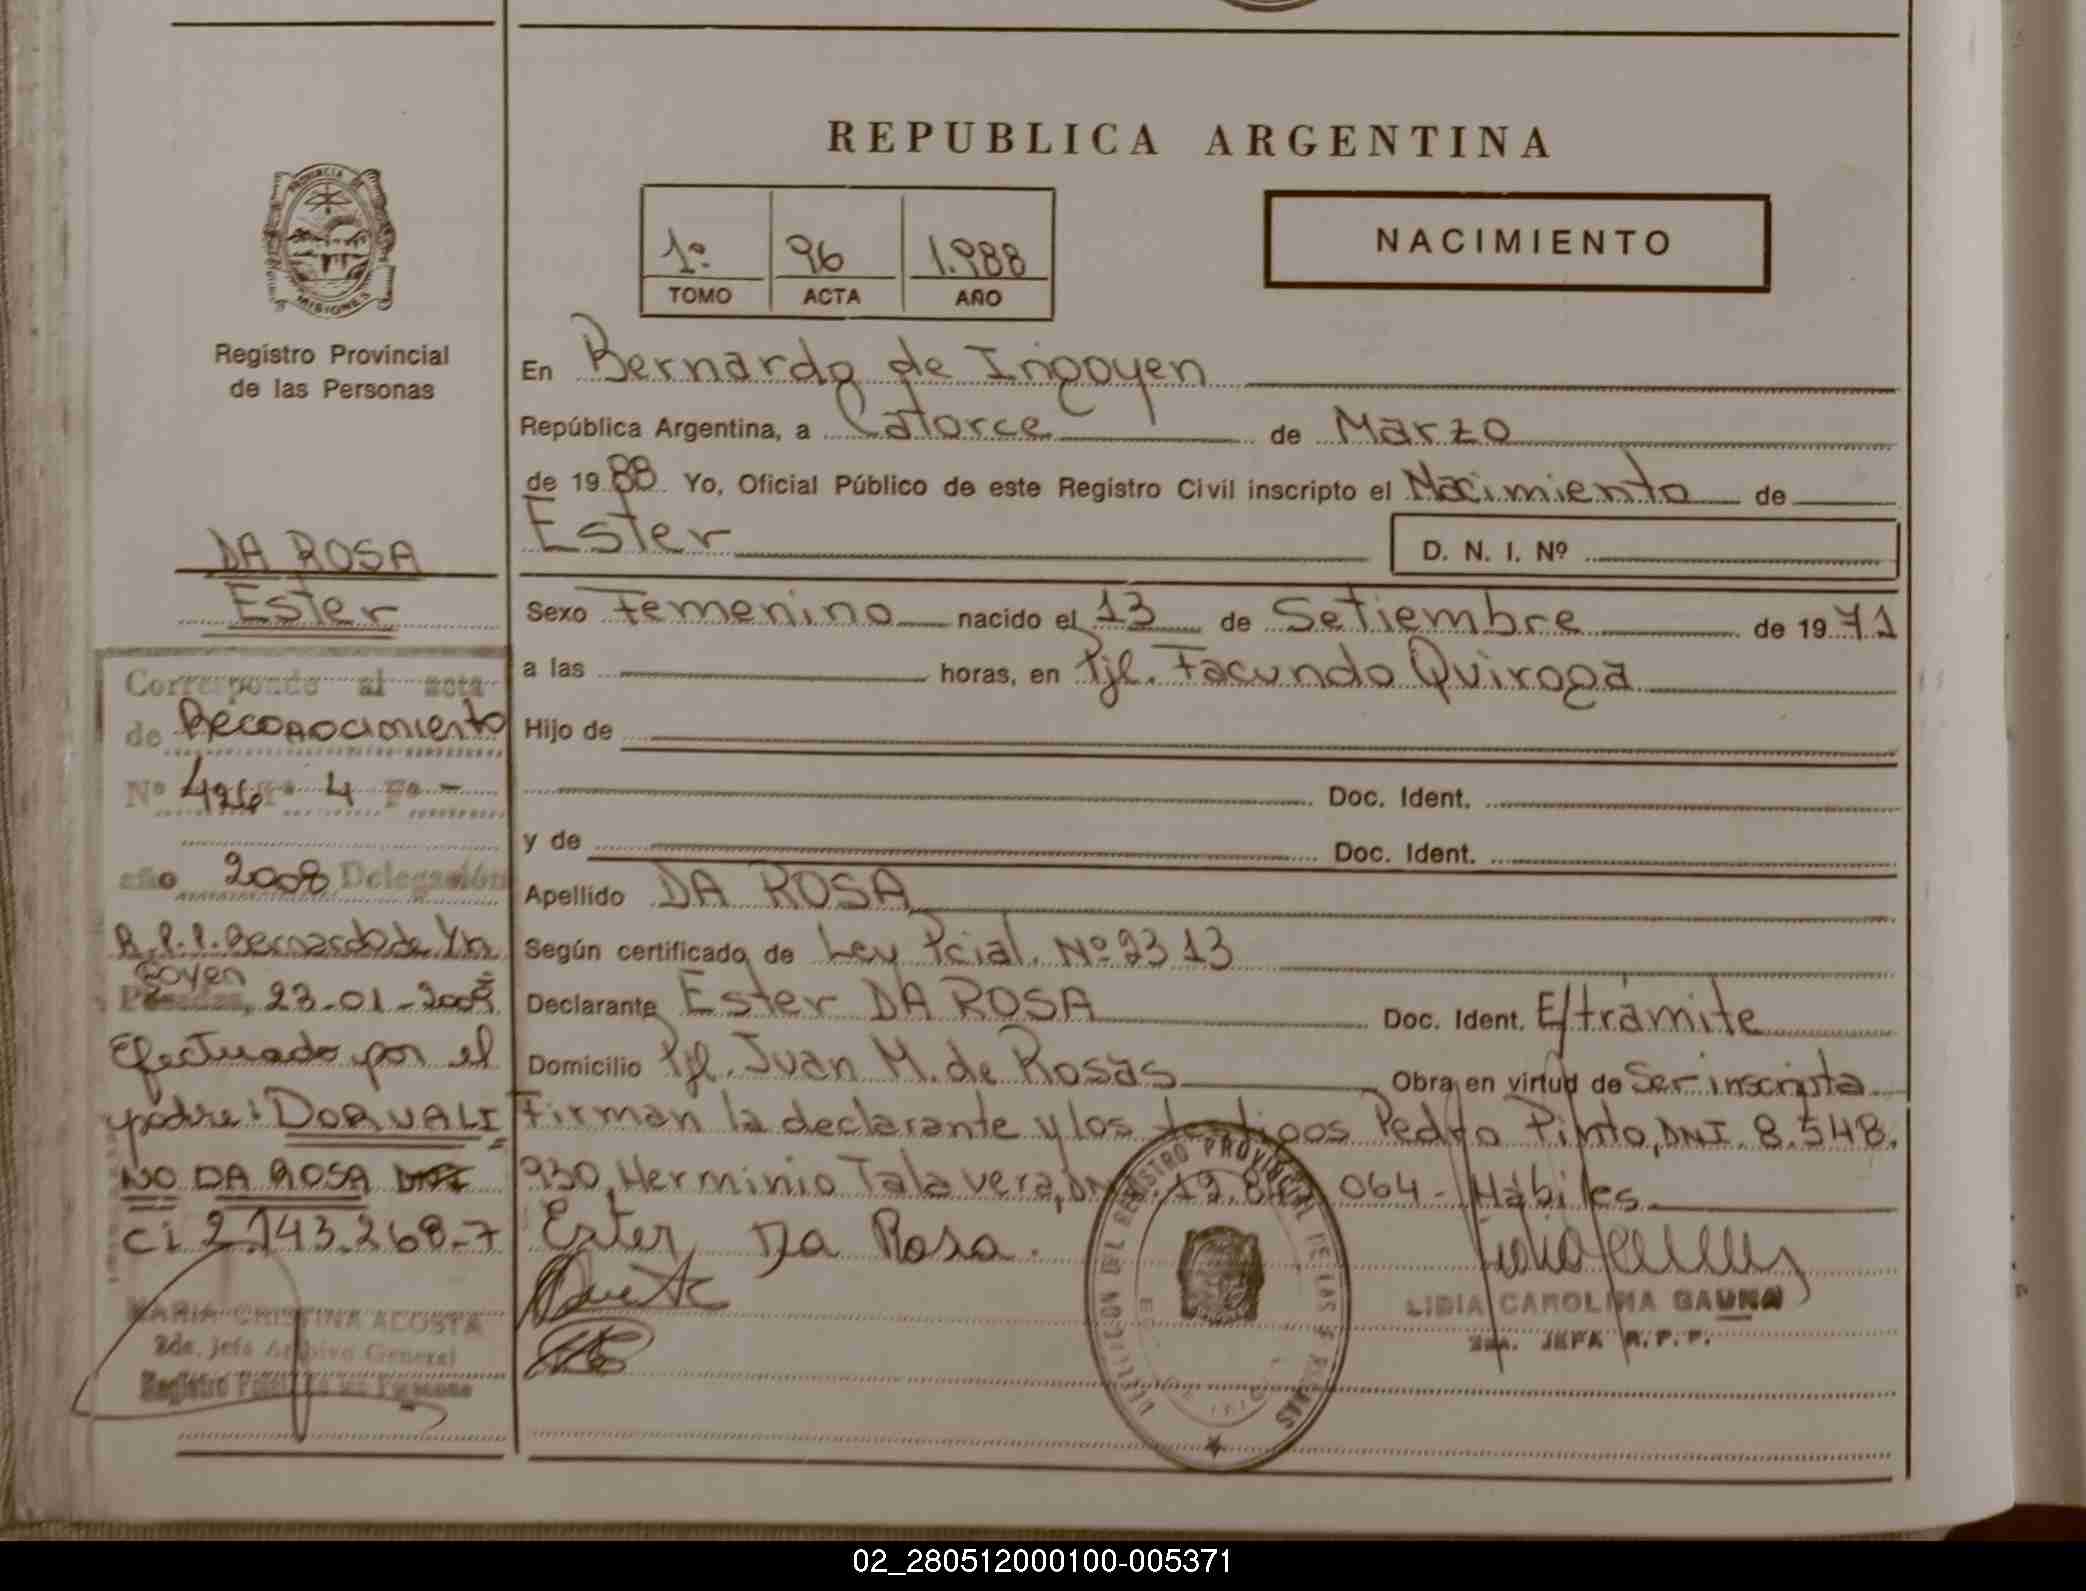 REPUBLICA ARGENTINA
1º 96 1.988
TOMO ACTA AÑO
NACIMIENTO
PROVINCIA DE
MISIONES
Registro Provincial
de las Personas
En Bernardo de Irigoyen
República Argentina, a Catorce de Marzo
de 1988 Yo, Oficial Público de este Registro Civil inscripto el Nacimiento de
Ester
D. N. I. Nº
Sexo Femenino nacido el 13 de Setiembre de 1971
a las horas, en Pjl. Facundo Quiroga
Hijo de
Doc. Ident.
y de Doc. Ident.
Apellido DA ROSA
Según certificado de Ley Pcial. Nº 2313
Declarante Ester DA ROSA Doc. Ident. E/trámite
Domicilio Pjl. Juan M. de Rosas Obra en virtud de Ser inscripta
Firman la declarante y los testigos Pedro Pinto, DNI 8.548.
930, Herminio Talavera, 064- Hábiles
Ester Da Rosa.
LIDIA CAROLINA GAUNA
JEFA R.P.P.
DA ROSA
Ester
Corresponde al acta
de Reconocimiento
Nº 426 Tº 4 Fº -
año 2008 Delegación
R.P.P. Bernardo de Yri
goyen
Posadas, 23-01-2009
Efectuado por el
padre: DORVALI
NO DA ROSA
CI 2.143.268-7
MARIA CRISTINA ACOSTA
2da. Jefa Archivo General
02_280512000100-005371